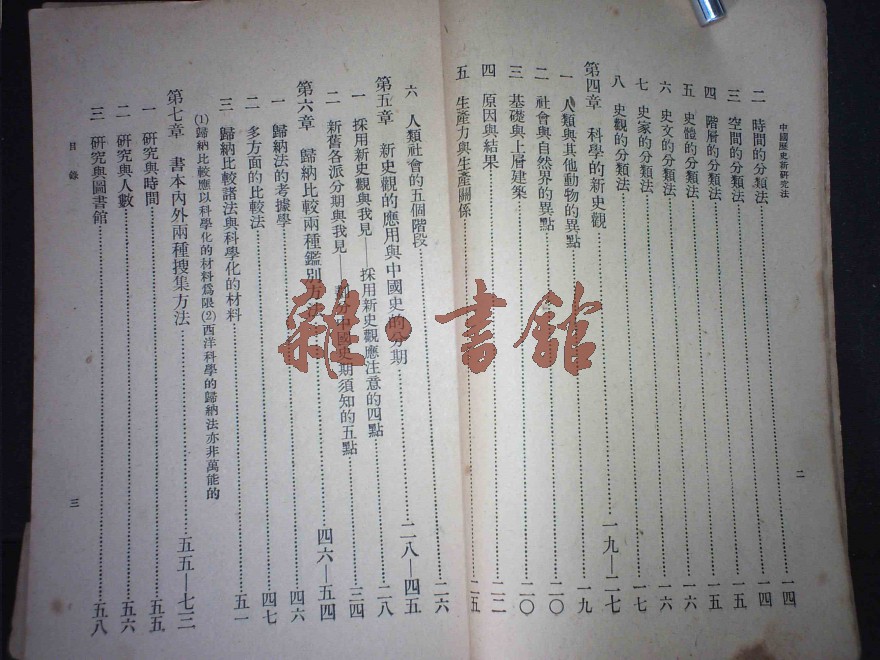 中國歷史新研究法
二
二 時間的分類法 一四
三 空間的分類法 一五
四 階層的分類法 一五
五 史體的分類法 一六
六 史文的分類法 一六
七 史家的分類法 一七
八 史觀的分類法 一七
第四章 科學的新史觀 一九—二七
一 人類與其他動物的異點 一九
二 社會與自然界的異點 二〇
三 基礎與上層建築 二〇
四 原因與結果 二二
五 生產力與生產關係 二五
六 人類社會的五個階段 二六
第五章 新史觀的應用與中國史的分期 二八—四五
一 採用新史觀與我見——採用新史觀應注意的四點 二八
二 新舊各派分期與我見——劃分中國史期須知的五點 三四
第六章 歸納比較兩種鑑別方法 四六—五四
一 歸納法的考據學 四六
二 多方面的比較法 四七
三 歸納比較諸法與科學化的材料 五一
(1)歸納比較應以科學化的材料爲限(2)西洋科學的歸納法亦非萬能的
第七章 書本內外兩種搜集方法 五五—七三
一 研究與時間 五五
二 研究與人數 五六
三 研究與圖書館 五八
目錄
三
雜·書館